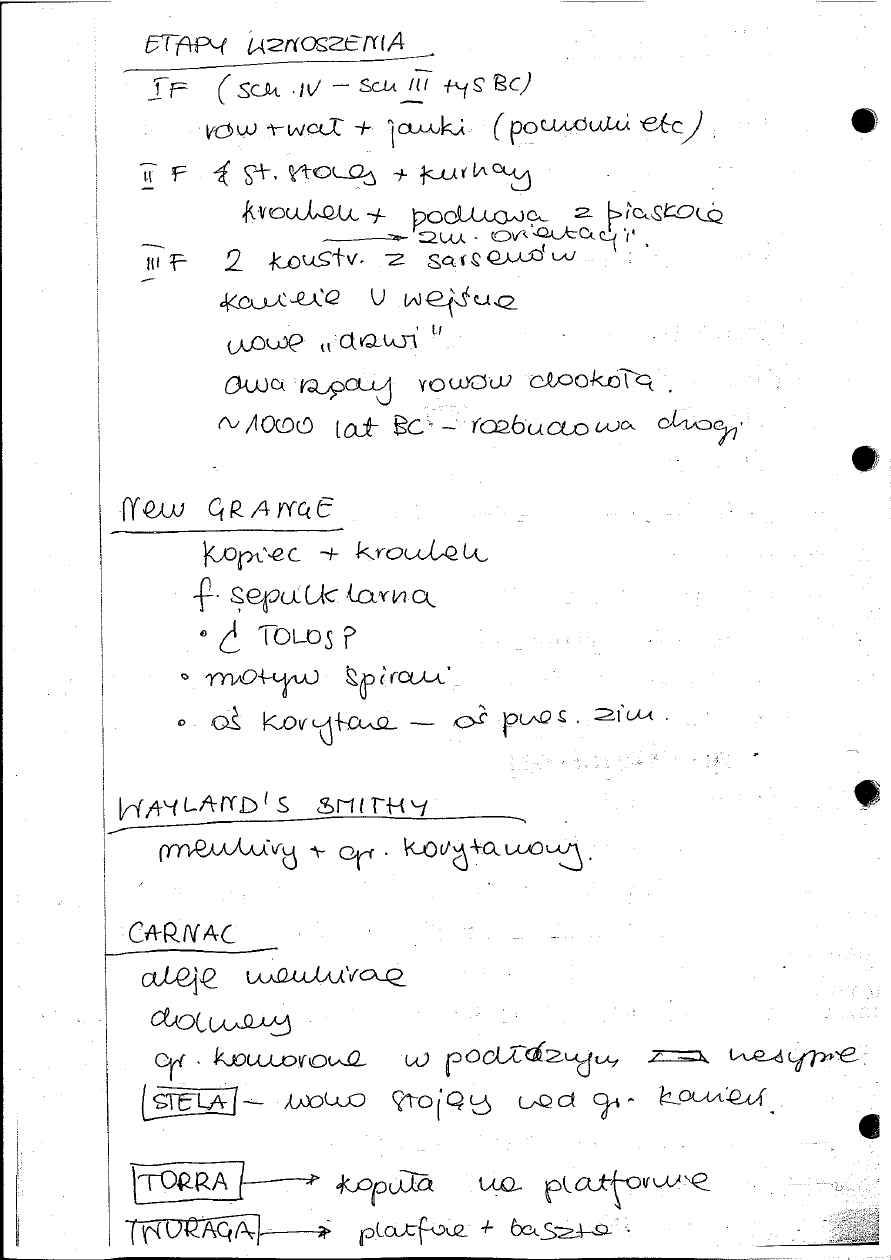 ETAPY WZNOSZENIA
I F (sch. IV – sch III tys BC)
rów + wał + jamki (pochówki etc)
II F st. stoces + kurhany
kromlech + podkowa z piaskowc
→ zm. orientacji.
III F 2 konstr. z sarsenów
kamienie w wejściu
nowe „drzwi"
dwa rzędy rowów dookoła.
~1000 lat BC – rozbudowa drogi
NEW GRANGE
kopiec + kromlech
f. sepulklarna
• TOLOSP
• motyw spirali
• oś korytarze – oś przes. zim.
WAYLAND'S SMITHY
menhiry + gr. korytarzowy.
CARNAC
aleje menhirae
dolmeny
gr. komorowe w podłużnym nasypie
STELA – wolno stojący nad gr. kamień.
TORRA → kopuła na platformie
NURAGA → platfoie + baszta.